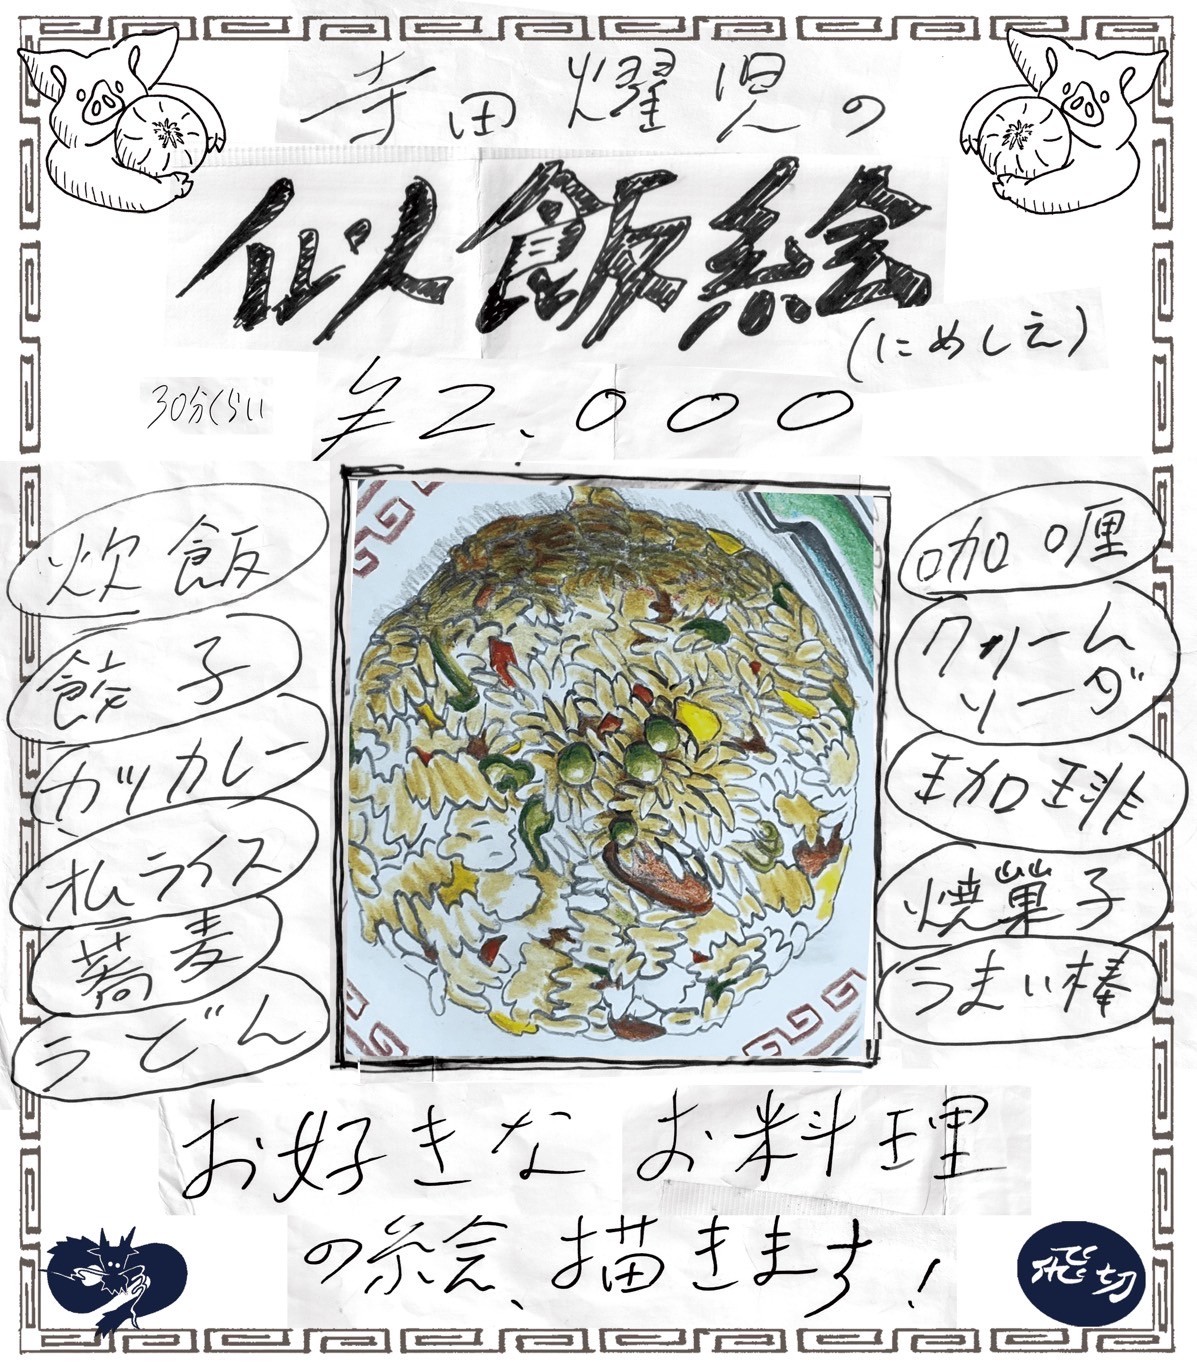 寺田燿児の
似飯絵
(にめしえ)
30分くらい
¥2,000
炊飯
餃子
カツカレー
オムライス
蕎麦
うどん
咖喱
クリーム
ソーダ
珈琲
焼菓子
うまい棒
お好きなお料理
の絵、描きます!
飛切